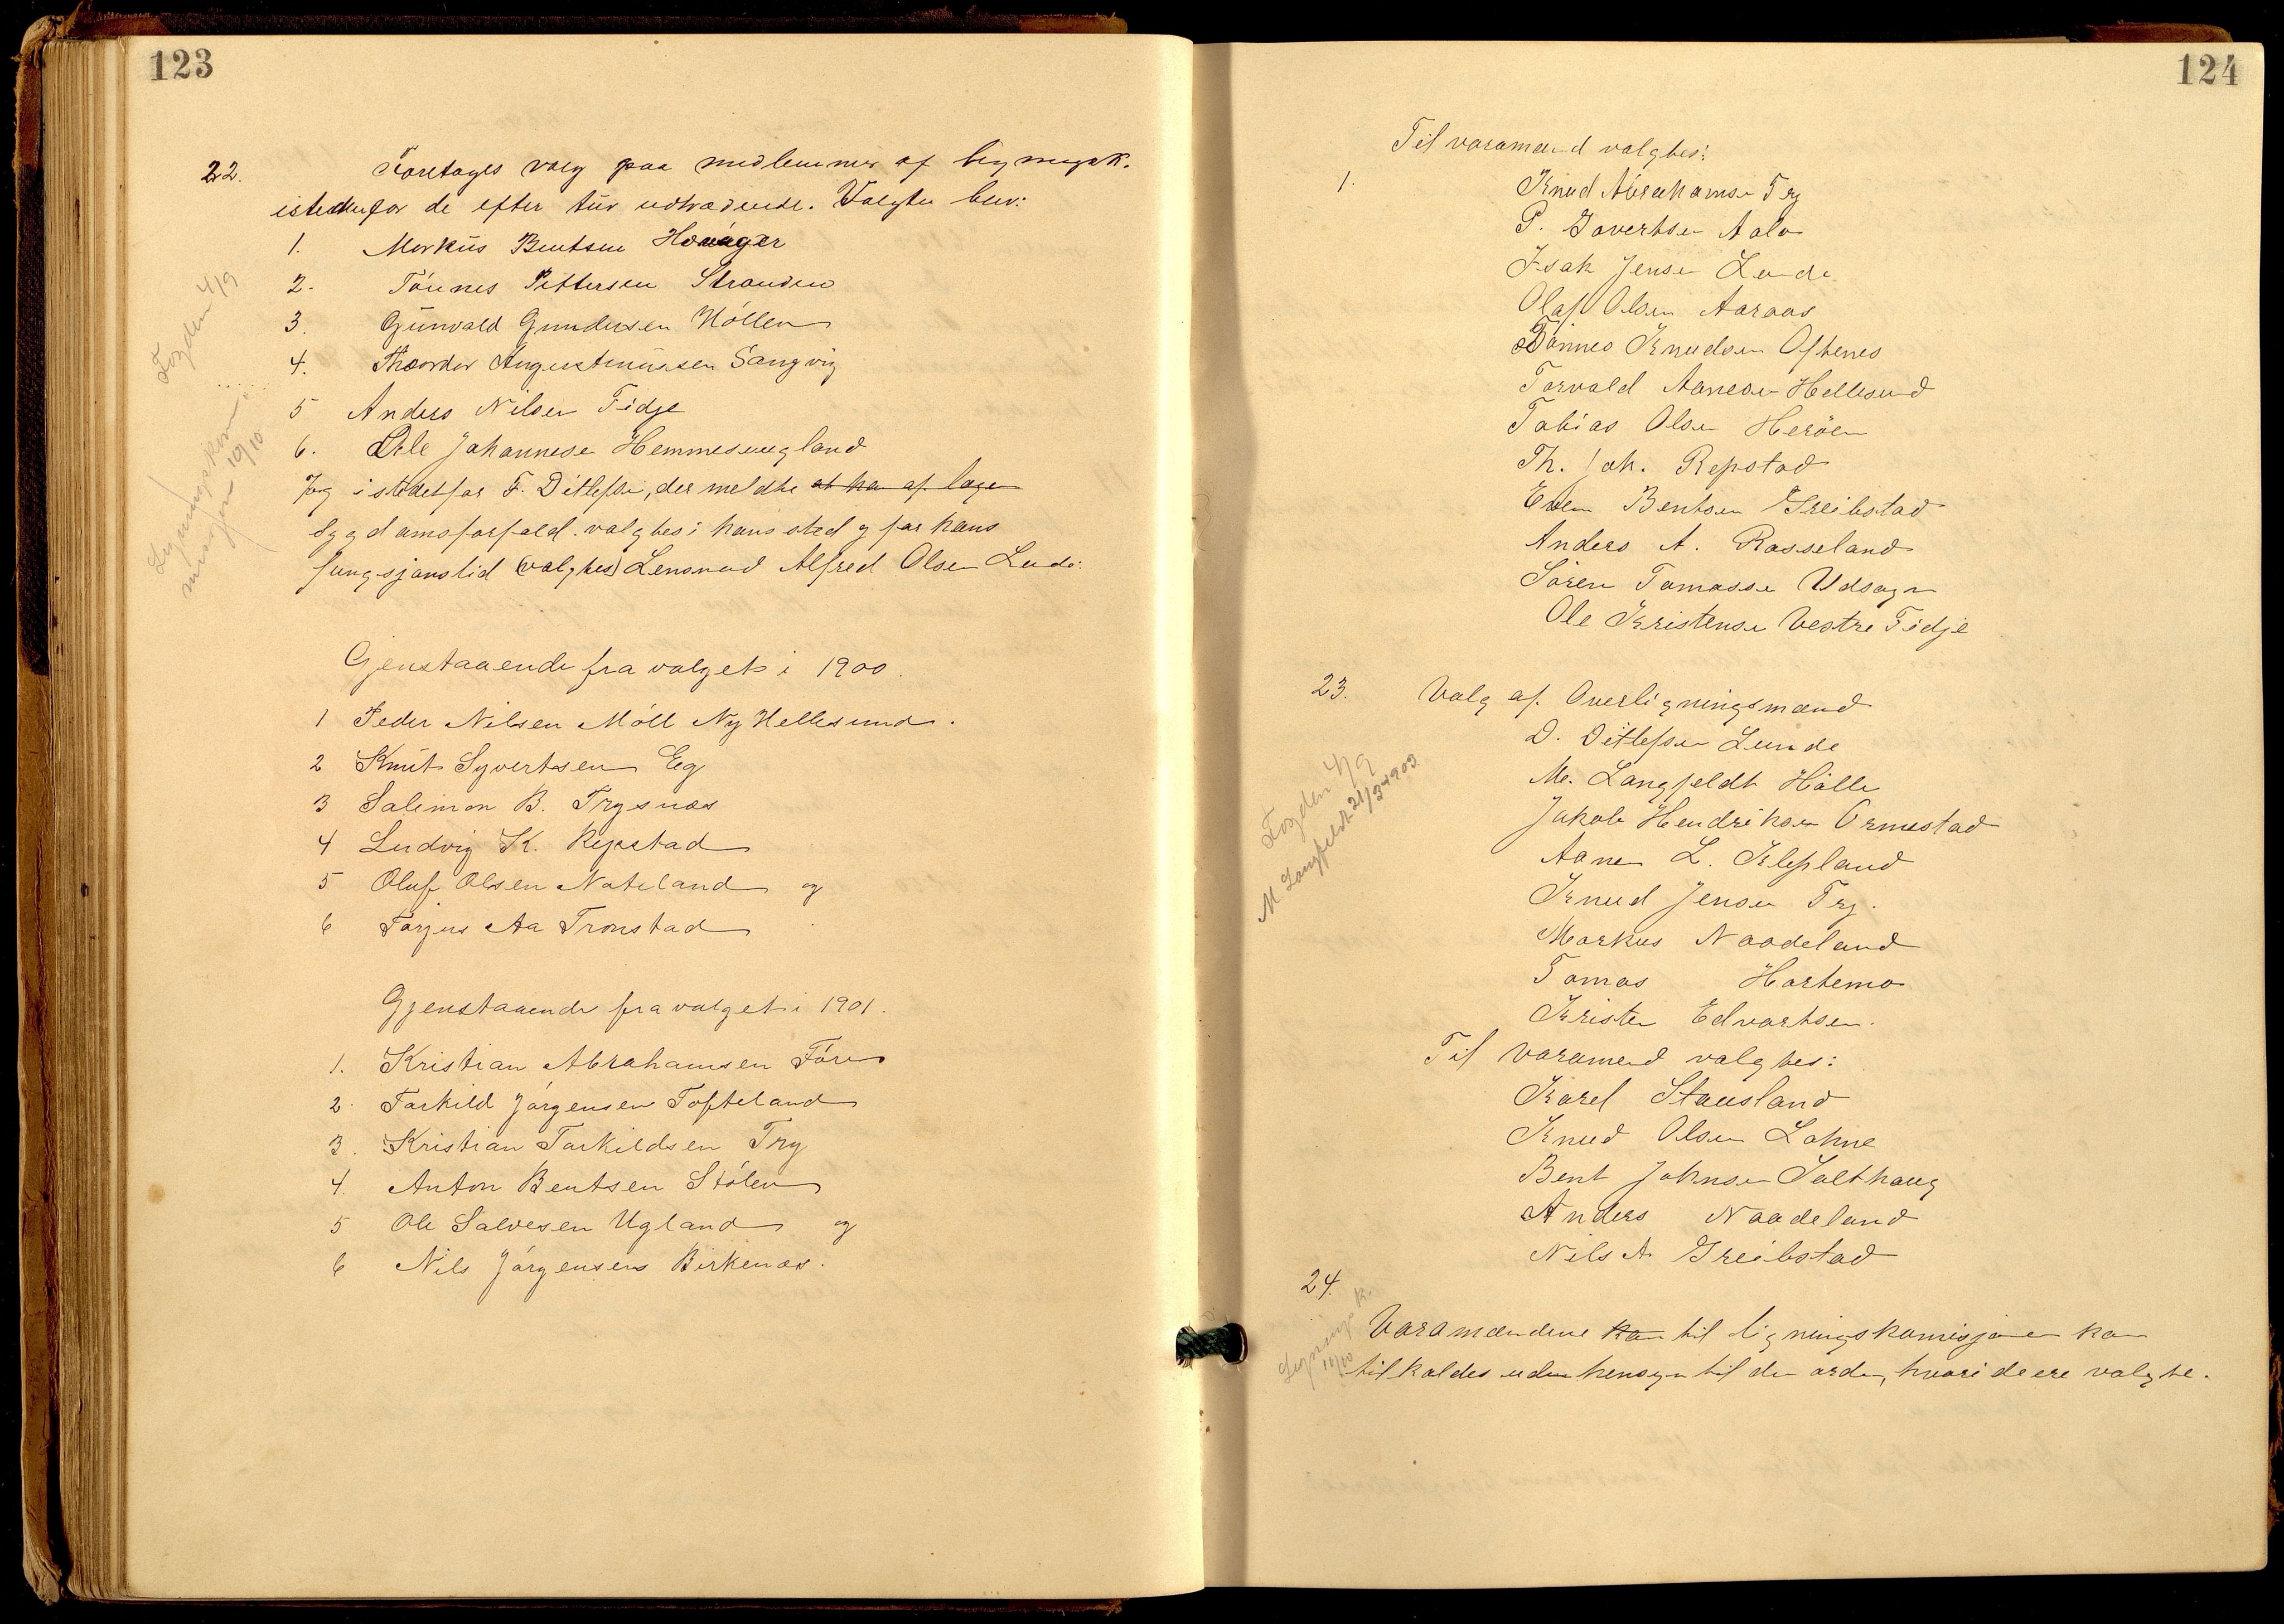 123
22. Foretages valg paa medlemmer af ligningsk.
istedenfor de efter tür udtrædende. Valgte blev:
1. Markus Bentsen Høvåger
2. Tönnes Pettersen Stranden
3. Günvald Gundersen Höllen
4. Theodor Augustinussen Sangvig
5 Anders Nilsen Tidje
6. Ole Johannesen Hemmesugland
Og istedetfor F. Ditlefsen, der meldte at han af lage
sygdomsforfald. valgtes i hans sted og for hans
fungsjonstid (valgtes) Lensmand Alfred Olsen Lunde.
Fogden 4/9
Ligningskom-
misjon 10/10
Gjenstaaende fra valget i 1900.
1 Peder Nilsen Möll Ny Hellesund.
2 Knut Syvertsen Eg
3 Salemon B. Trysnæs
4 Ludvig K. Repstad
5 Oluf Olsen Nateland og
6 Torjus Aa Tronstad
Gjenstaaende fra valget i 1901.
1. Kristian Abrahamsen Töre
2. Tarkild Jörgensen Tofteland
3. Kristian Tarkildsen Try
4. Anton Bentsen Stölen
5 Ole Salvesen Ugland og
6 Nils Jörgensen Birkenæs.
124
Til varamænd valgtes:
1. Knud Abrahamsen Try
P. Govertsen Aalo
Isak Jensen Lunde
Olaf Olsen Aaraas
Tönnes Knudsen Oftenes
Torvald Aanesen Hellesund
Tobias Olsen Heröen
Th. Joh. Repstad
Even Bentsen Greibstad
Anders A. Rosseland
Sören Tomassen Udsogn
Ole Kristensen Vestre Tidje
23. Valg af Overligningsmænd
D. Ditlefsen Lunde
M. Langfeldt Hölle
Jakob Hendriksen Ormestad
Aanen L. Klepland
Knud Jensen Try.
Markus Naadeland
Tomas Hortemo
Kristen Edvartsen.
Fogden 4/9
M Langfeldt 21/3 1903
Til varamænd valgtes:
Karel Stausland
Knud Olsen Lohne
Bent Johnsen Salthaug
Anders Naadeland
Nils A Greibstad
24.
Varamændene kan til ligningskomisjonen kan
tilkaldes uden hensyn til den orden, hvori de ere valgte.
Ligningsk.
10/10